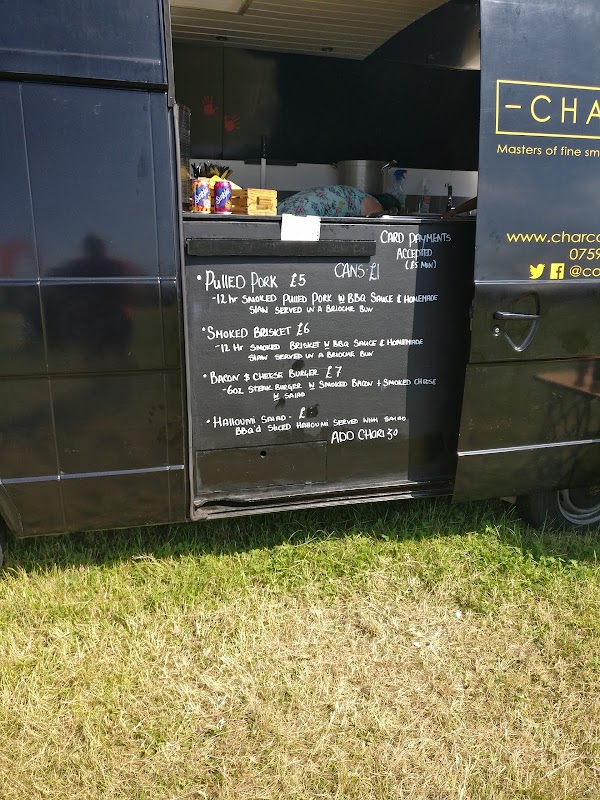 - CHA
Masters of fine sm
www.charco
0759
@co
CARD PAYMENTS
ACCEPTED
(£5 MIN)
CANS - £1
• PULLED PORK £5
- 12 hr SMOKED PULLED PORK W BBQ SAUCE & HOMEMADE
SLAW SERVED IN A BRIOCHE BUN
• SMOKED BRISKET £6
- 12 Hr SMOKED BRISKET W BBQ SAUCE & HOMEMADE
SLAW SERVED IN A BRIOCHE BUN
• BACON & CHEESE BURGER £7
- 6oz STEAK BURGER W SMOKED BACON + SMOKED CHEESE
W SALAD
• HALLOUMI SALAD - £
BBQ'd SLICED HALLOUMI SERVED WITH SALAD
ADD CHORIZO